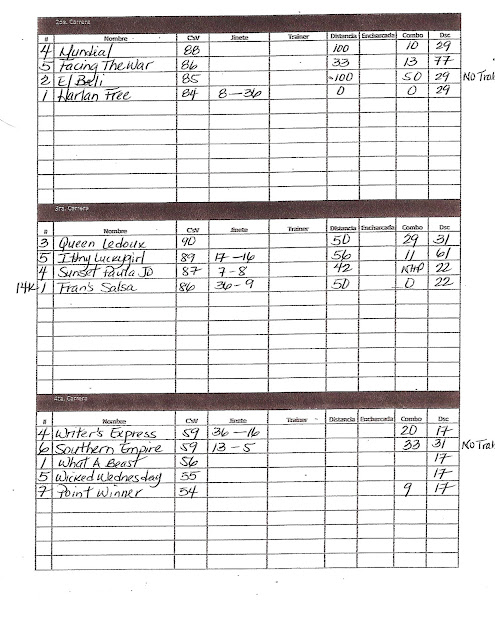 2da. Carrera
# Nombre CSW Jinete Trainer Distancia Encharcada Combo Dsc
4 Mundial 88 100 10 29
5 Facing The War 86 33 13 77
2 El Beli 85 -100 50 29 No Trab
1 Harlan Free 84 8-36 0 0 29
3ra. Carrera
# Nombre CSW Jinete Trainer Distancia Encharcada Combo Dsc
3 Queen Ledoux 90 50 29 31
5 Ithny Luckygirl 89 17-16 56 11 61
4 Sunset Paula JD 87 7-8 42 22
14K 1 Fran's Salsa 86 36-9 50 0 22
4ta. Carrera
# Nombre CSW Jinete Trainer Distancia Encharcada Combo Dsc
4 Writer's Express 59 36-16 20 17
6 Southern Empire 59 13-5 33 31 No Trab
1 What A Beast 56 17
5 Wicked Wednesday 55 17
7 Point Winner 54 9 17